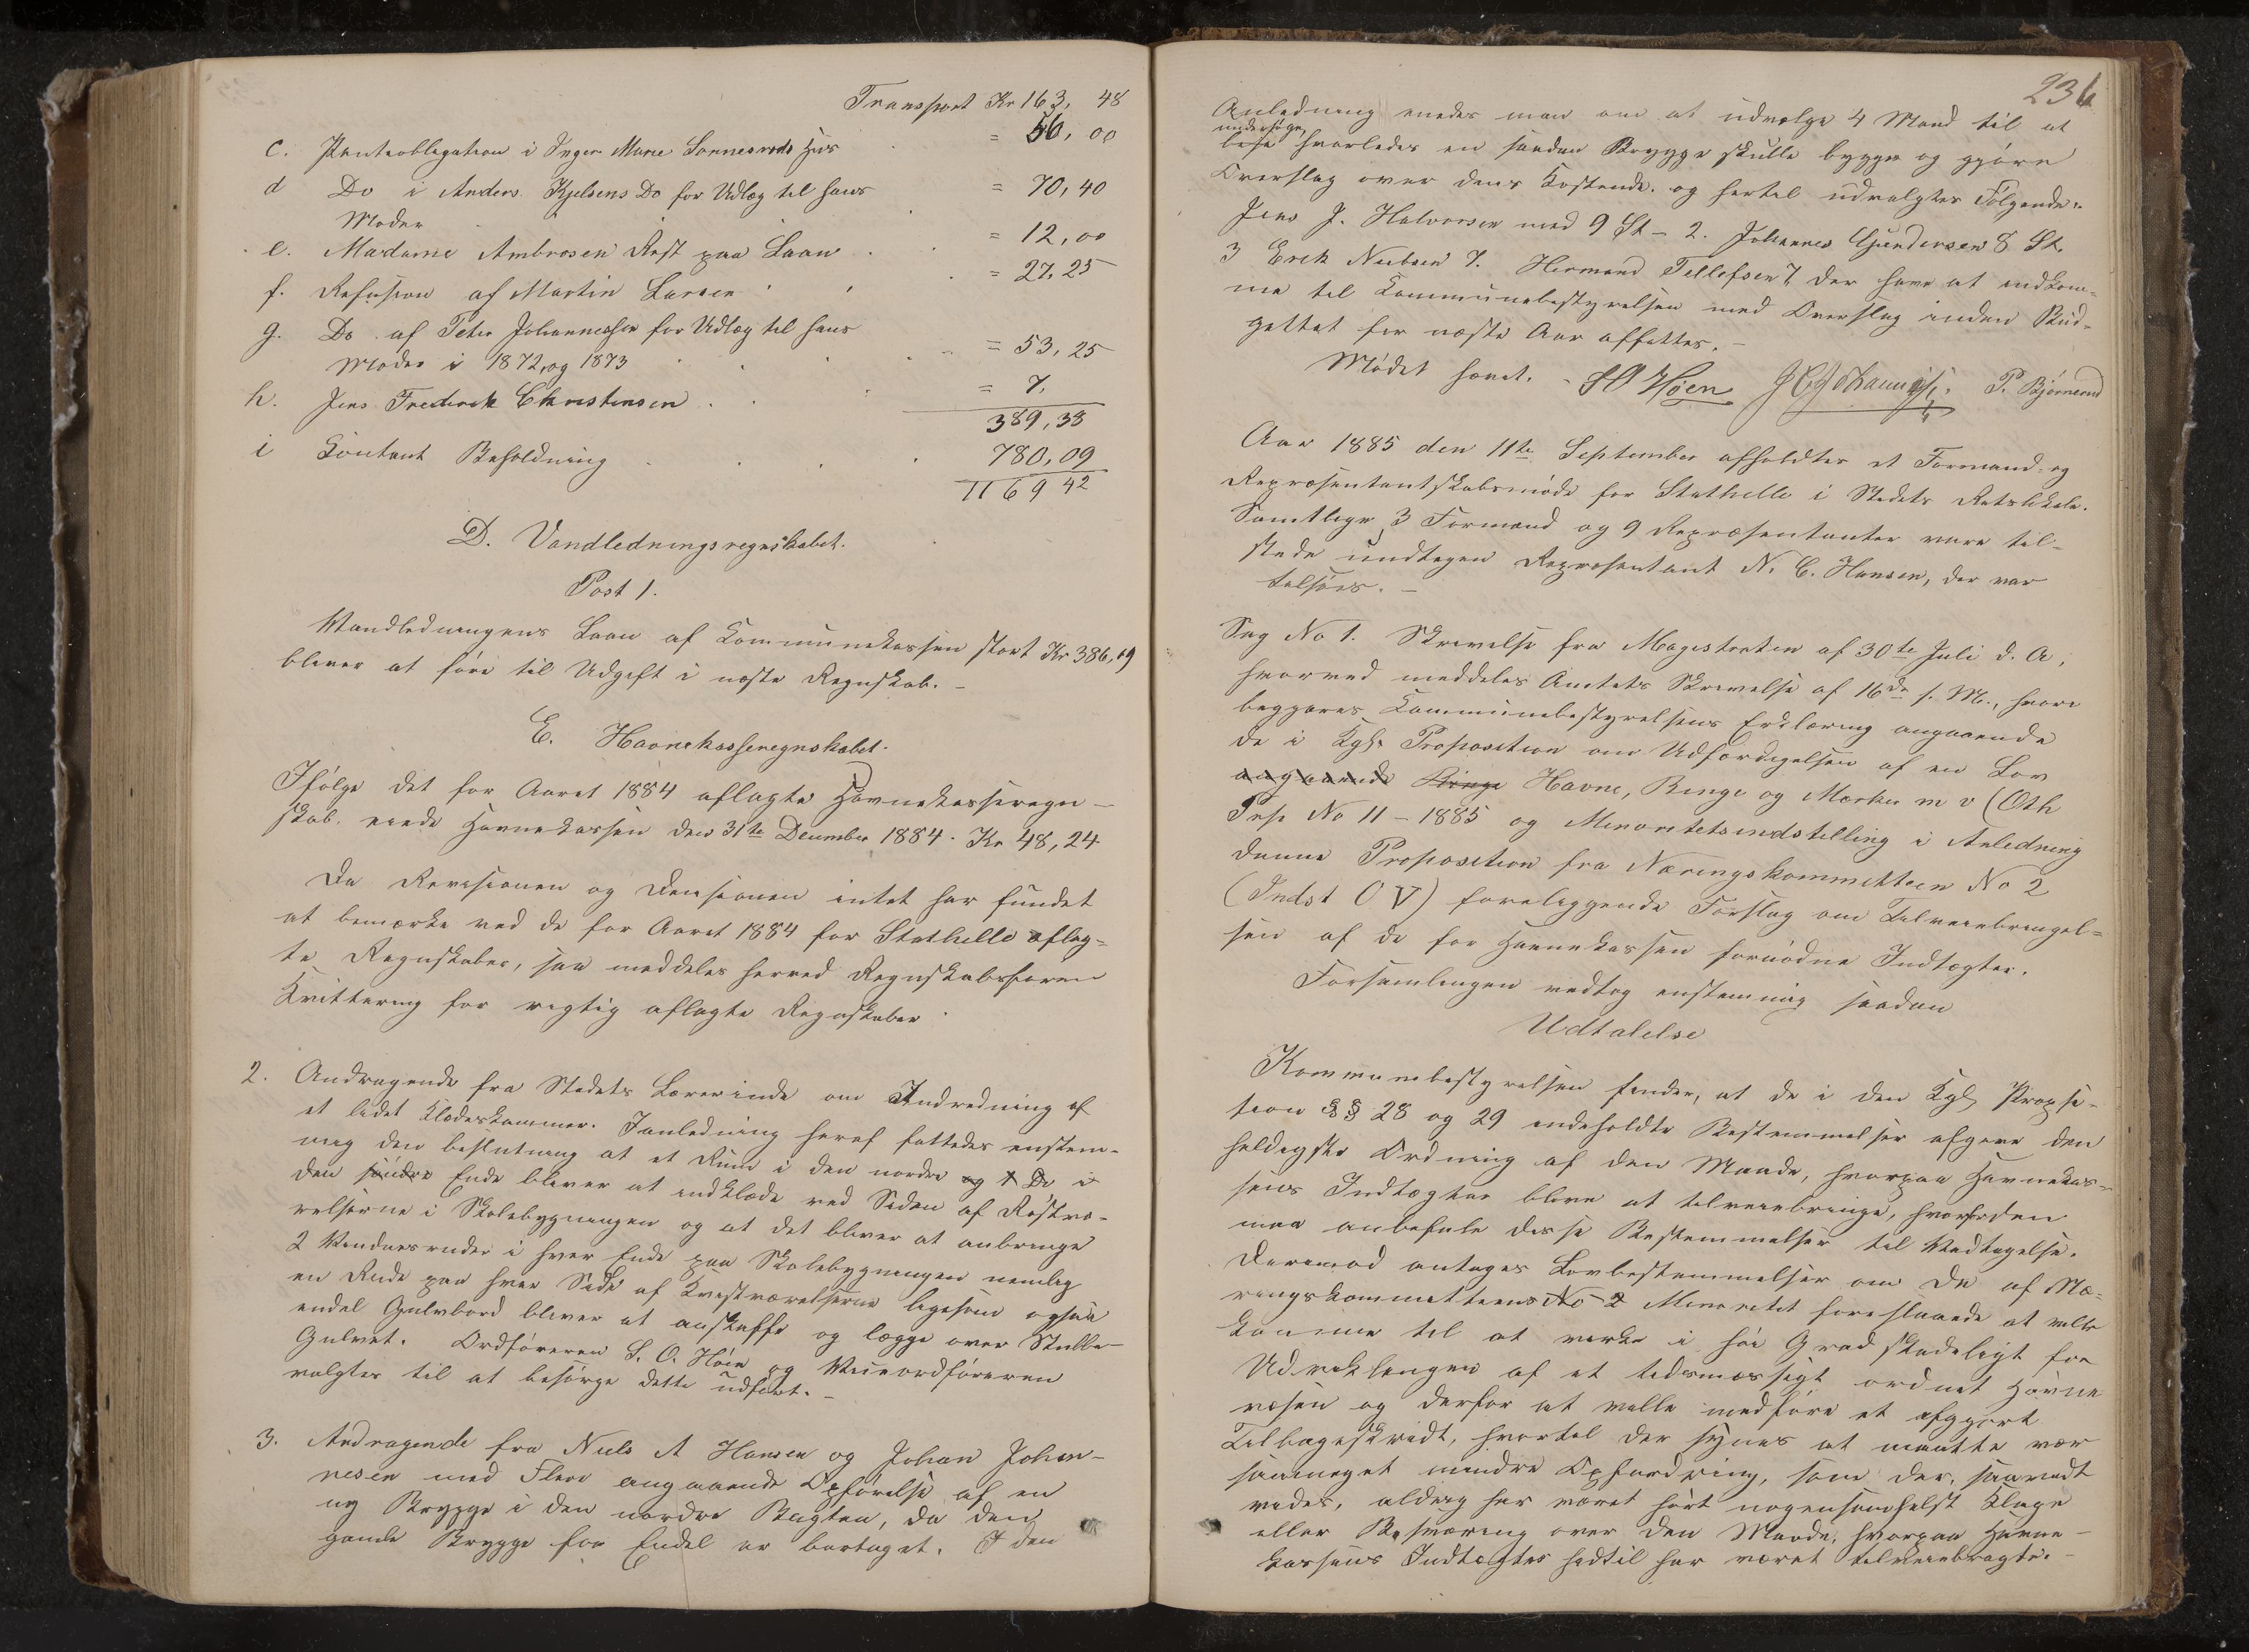 Transport Kr 163, 48
c. Panteobligation i Inger Marie Sannesrods Hus = 56, 00
d Do i Anders Kjelsens Do for Udlæg til hans = 70, 40
Moder
e. Madame Ambrosen Rest paa Laan = 12, 00
f. Refusion af Martin Larsen = 27. 25
g. Do. af Peter Johannessen for Udlæg til hans
Moder i 1872 og 1873 = 53, 25
h. Jens Frederik Christensen = 7.
389, 38
i Contant Beholdning 780, 09
1169 42
D. Vandledningsregnskabet.
Post 1.
Vandledningens Laan af Kommunekassen stort Kr 386,09
bliver at føre til Udgift i næste Regnskab. –
E. Havnekasseregnskabet.
Ifølge det for Aaret 1884 aflagte Havnekasseregn-
skab. eiede Havnekassen den 31te December 1884. Kr 48, 24
Da Revisionen og Decisionen intet har fundet
at bemærke ved de for Aaret 1884 for Stathelle aflag-
te Regnskaber, saa meddeles herved Regnskabsføreren
Kvittering for rigtig aflagte Regnskaber.
2. Andragende fra Stedets Lærerinde om Indredning af
et lidet Klædeskammer. I anledning heraf fattedes enstem-
mig den beslutning at et Rum i den nordre og 1 Do i
den søndre Ende bliver at indklæde ved Siden af Kvistvæ-
relserne i Skolebygningen og at det bliver at anbringe
2 Vinduesruder i hver Ende paa Skolebygningen nemlig
en Rude paa hver Side af Kvistværelserne ligesom ogsaa
endel Gulvbord bliver at anskaffe og lægge over Stubbe-
Gulvet. Ordføreren S. O. Høen og Viceordføreren
valgtes til at besørge dette udført. –
3. Andragende fra Niels A Hansen og Johan Johan-
nesen med Flere angaaende Opførelse af en
ny Brygge i den nordre Bugten, da den
gamle Brygge for Endel er borttaget. I den
236
Anledning enedes man om at udvælge 4 Mand til at
undersøge
bese hvorledes en saadan Brygge skulle bygges og gjøre
Overslag over dens Kostende. og hertil udvalgtes Følgende:
Jens J. Halvorsen med 9 St – 2. Johannes Gundersen 8 St.
3 Erik Nielsen 7. Hermand Tellefsen 7, der have at indkom-
me til Kommunebestyrelsen med Overslag inden Bud-
gettet for næste Aar affattes. –
Mødet hævet. – S O Høen J C Johannes. P. Bjørnerud
Aar 1885 den 11te September afholdtes et Formand- og
Repræsentantskabsmøde for Stathelle i Stedets Retslokale.
Samtlige 3 Formænd og 9 Repræsentanter vare til-
stede undtagen Repræsentant N. C. Hansen, der var
tilsøes. –
Sag No 1. Skrivelse fra Magistraten af 30te Juli d. A,
hvorved meddeles Amtets Skrivelse af 16de s. M., hvori
begjæres Kommunebestyrelsens Erklæring angaaende
de i Kgl. Proposition om Udfærdigelsen af en Lov
angaaende Ringe Havne, Ringe og Mærker m v (Oth
Prp No 11 – 1885 og Minoritetsindstilling i Anledning
denne Proposition fra Næringskommitteen No 2
(Indst O V) foreliggende Forslag om Tilveiebringel-
sen af de for Havnekassen fornødne Indtægter.
Forsamlingen vedtog enstemmig saadan
Udtalelse
Kommunebestyrelsen finder, at de i den Kgl Propsi-
tion §§ 28 og 29 indeholdte Bestemmelser afgive den
heldigste Ordning af den Maade, hvorpaa Havnekas-
sens Indtægter blive at tilveiebringe, hvorfor den
maa anbefale disse Bestemmelser til Vedtagelse.
Derimod antages Lovbestemmelser om de af Næ-
ringskommitteens No 2 Minoritet foreslaaede at ville
komme til at virke i høi Grad skadeligt for
Udviklingen af et tidsmæssigt ordnet Havne
væsen og derfor at ville medføre et afgjort
Tilbageskridt, hvortil der synes at maatte vær
saameget mindre Opfordring, som der, saavidt
vides, aldrig har været hørt nogensomhelst Klage
eller Besværing over den Maade, hvorpaa Havne-
kassens Indtægter hidtil har været tilveiebragte. –